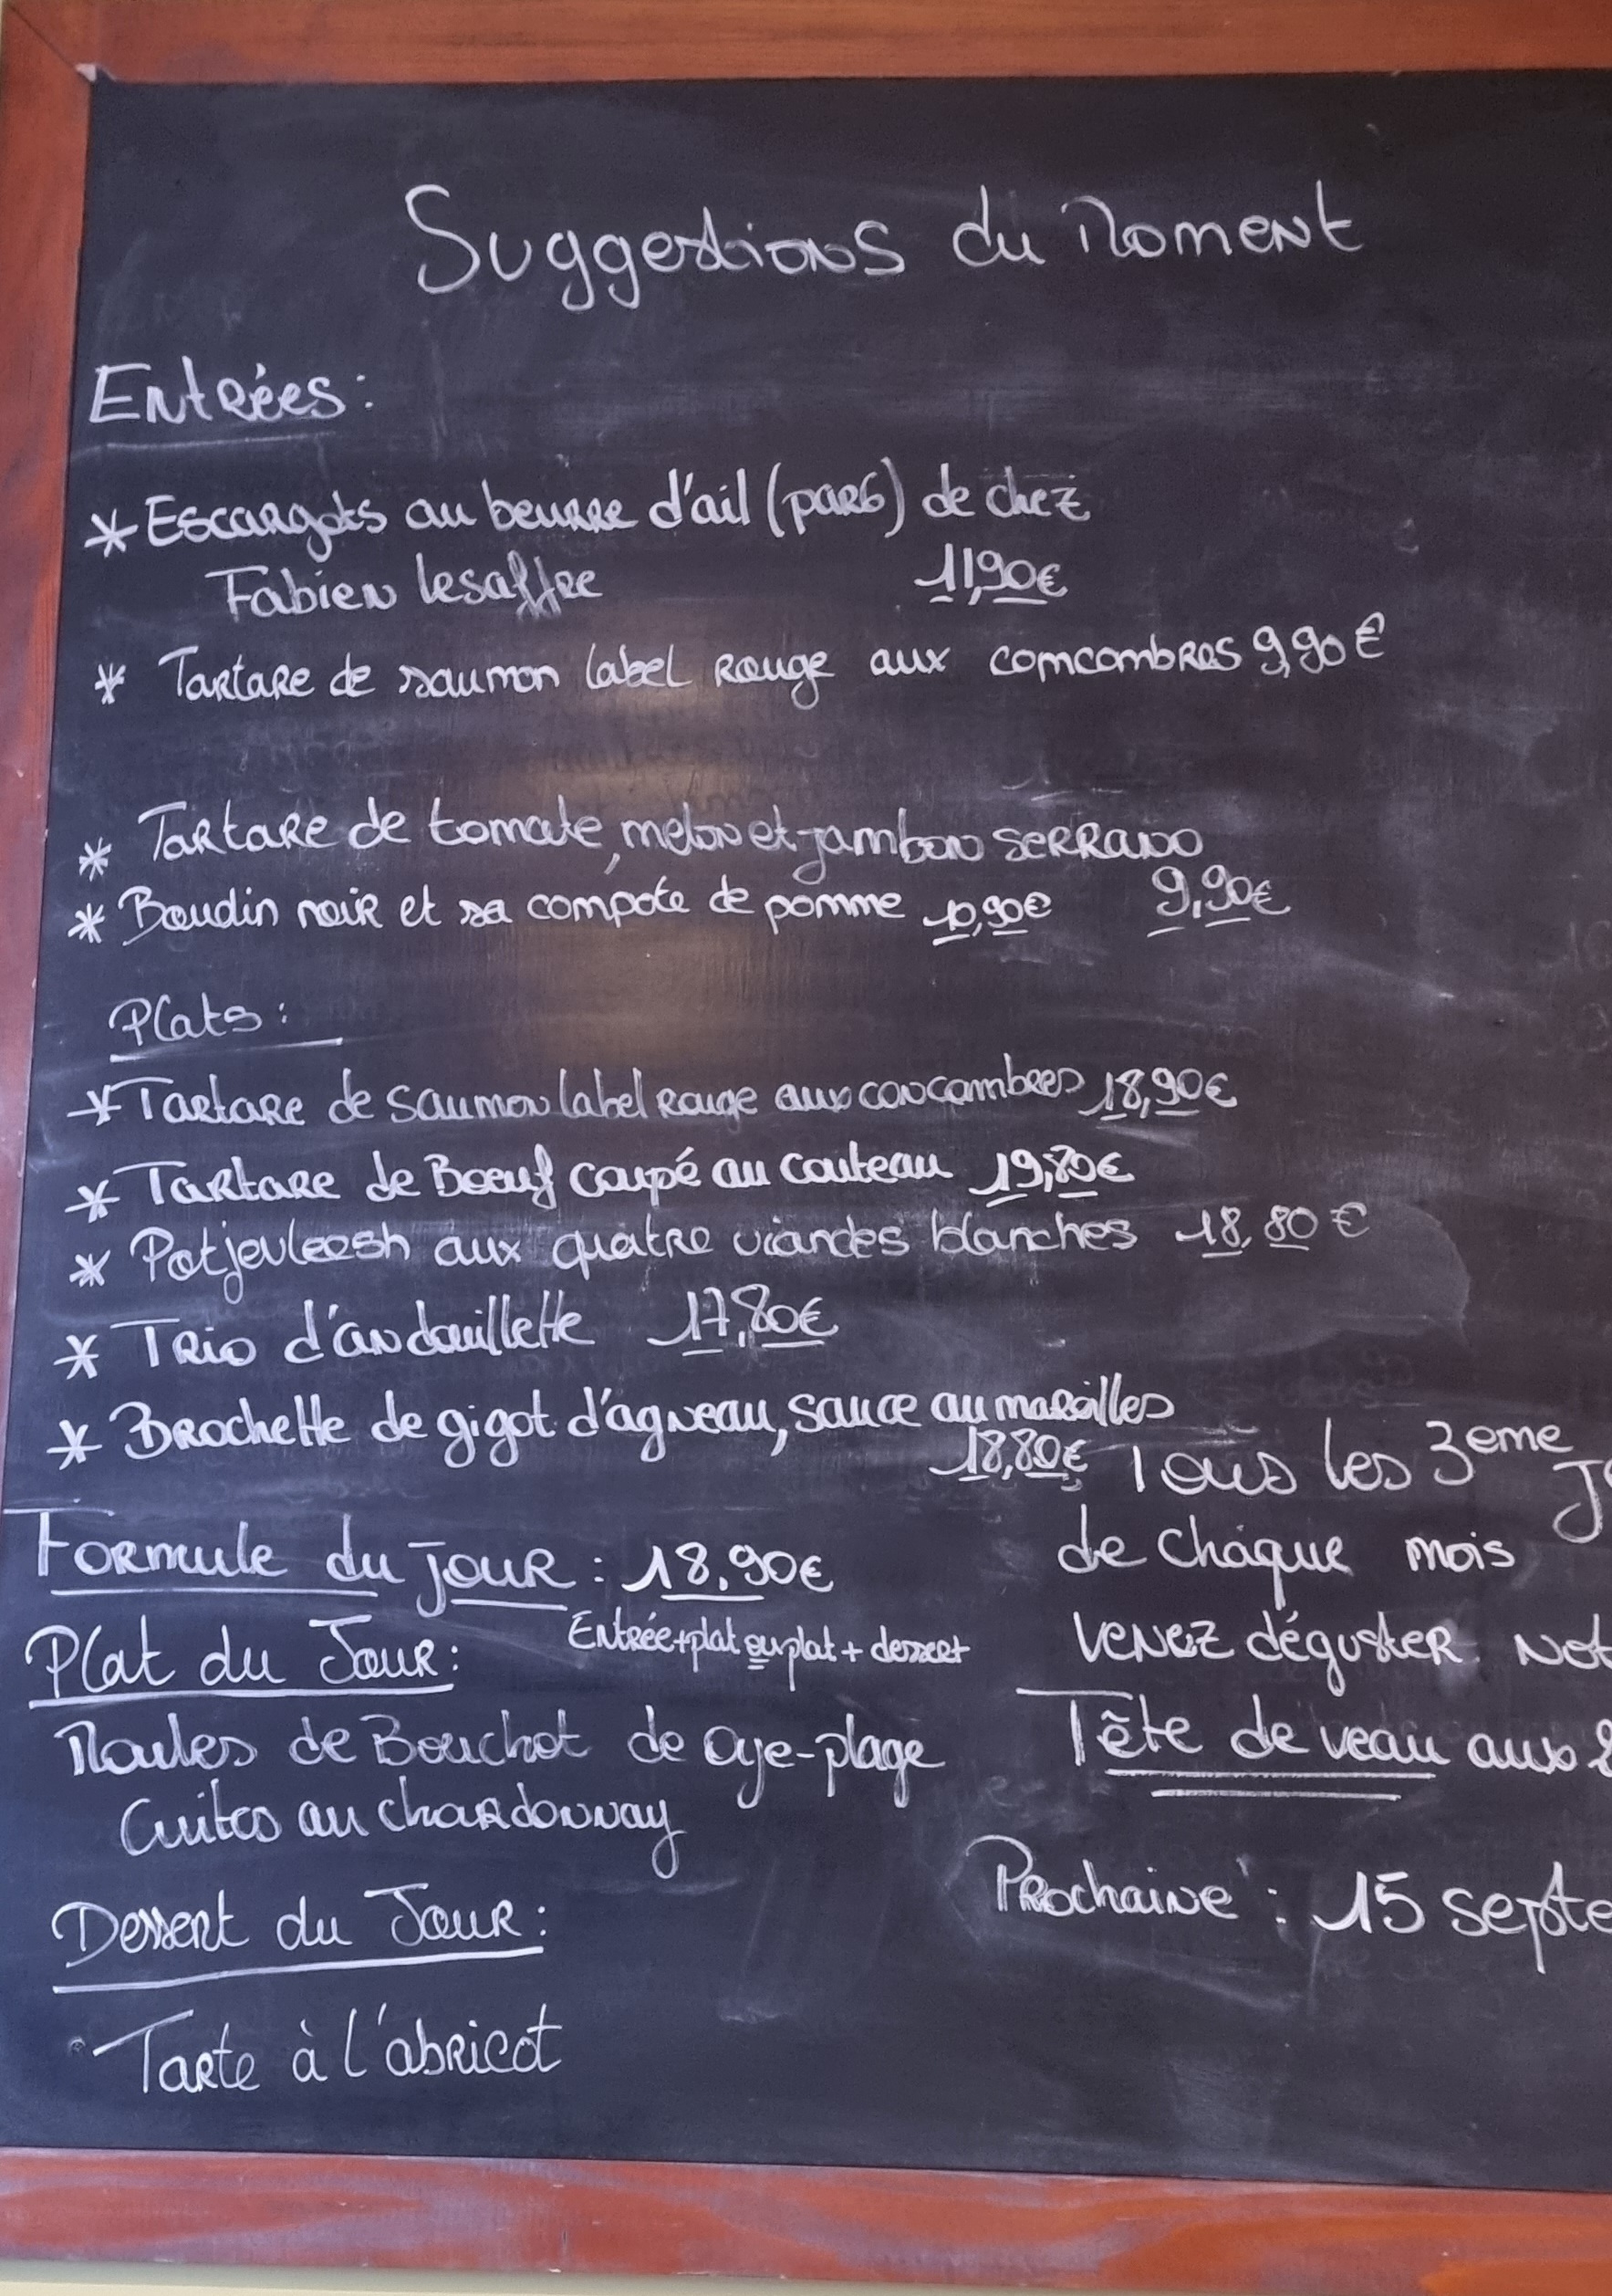 Suggestions du Moment
Entrées :
* Escargots au beurre d'ail (par 6) de chez
Fabien Lesaffre 11,90€
* Tartare de saumon label Rouge aux comcombres 9,90€
* Tartare de tomate, melon et jambon serrano
9,90€
* Boudin noir et sa compote de pomme 10,90€
Plats :
* Tartare de saumon label Rouge aux concombres 18,90€
* Tartare de Boeuf coupé au couteau 19,80€
* Potjevleesh aux quatre viandes blanches 18,80€
* Trio d'andouillette 17,80€
* Brochette de gigot d'agneau, sauce au maroilles
18,80€
Formule du jour : 18,90€
Entrée+plat ou plat + dessert
Plat du Jour :
Moules de Bouchot de Oye-plage
Cuites au chardonnay
Dessert du Jour :
Tarte à l'abricot
Tous les 3eme
de chaque mois
venez déguster
Tête de veau aux
Prochaine : 15 septe